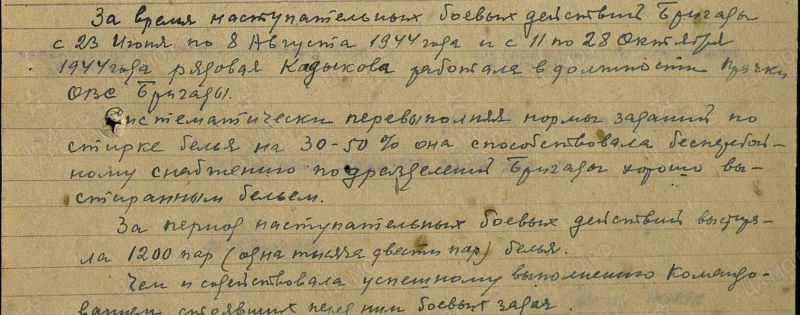 За время наступательных боевых действий Бригады
с 23 Июня по 8 Августа 1944 года и с 11 по 28 Октября
1944 года рядовая Кадыкова работала в должности прачки
ОВС Бригады.
Систематически перевыполняя нормы заданий по
стирке белья на 30-50% она способствовала бесперебой-
ному снабжению подразделений Бригады хорошо вы-
стиранным бельем.
За период наступательных боевых действий выстира-
ла 1200 пар (одна тысяча двести пар) белья.
Чем и содействовала успешному выполнению Командо-
ванием стоявших перед ним боевых задач.